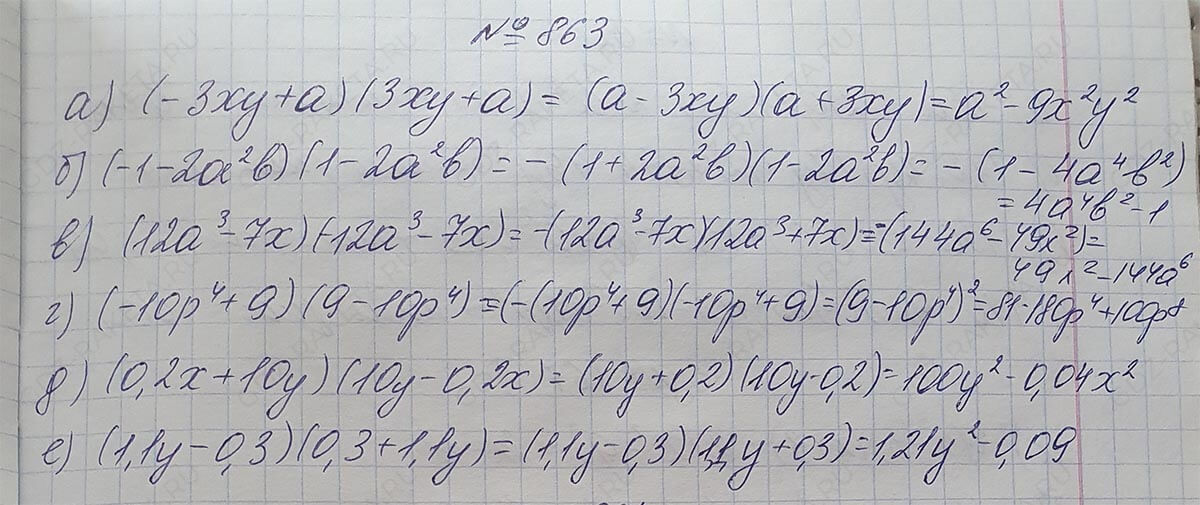 № 863
а) (-3xy+a)(3xy+a) = (a-3xy)(a+3xy) = a²-9x²y²
б) (-1-2a²b)(1-2a²b) = -(1+2a²b)(1-2a²b) = -(1-4a⁴b²)
= 4a⁴b²-1
в) (12a³-7x)(-12a³-7x) = -(12a³-7x)(12a³+7x) = -(144a⁶-49x²) =
49x²-144a⁶
г) (-10p⁴+9)(9-10p⁴) = (-(10p⁴+9)(-10p⁴+9) = (9-10p⁴)² = 81-180p⁴+100p⁸
д) (0,2x+10y)(10y-0,2x) = (10y+0,2)(10y-0,2) = 100y²-0,04x²
е) (1,1y-0,3)(0,3+1,1y) = (1,1y-0,3)(1,1y+0,3) = 1,21y²-0,09